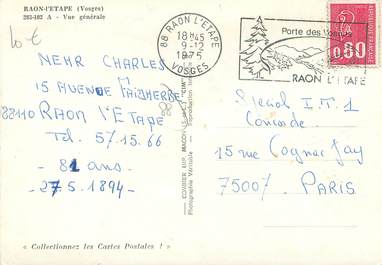 RAON-L'ETAPE (Vosges)
283-102 A - Vue générale
10 €
NEHR CHARLES
15 AVENUE M FAIDHERBE
88110 RAON L'ETAPE
Tel. 57.15.66
- 81 ans -
- 27.5.1894 -
« Collectionnez les Cartes Postales ! »
COMBIER IMP. MACON
Photographie Véritable - Reproduction
88 RAON L'ETAPE
18H45
9-12
1975
VOSGES
Porte des Vosges
RAON L'ETAPE
REPUBLIQUE FRANCAISE
0,80
Special I.T.1
Concorde
15 rue Cognac Jay
75007. PARIS